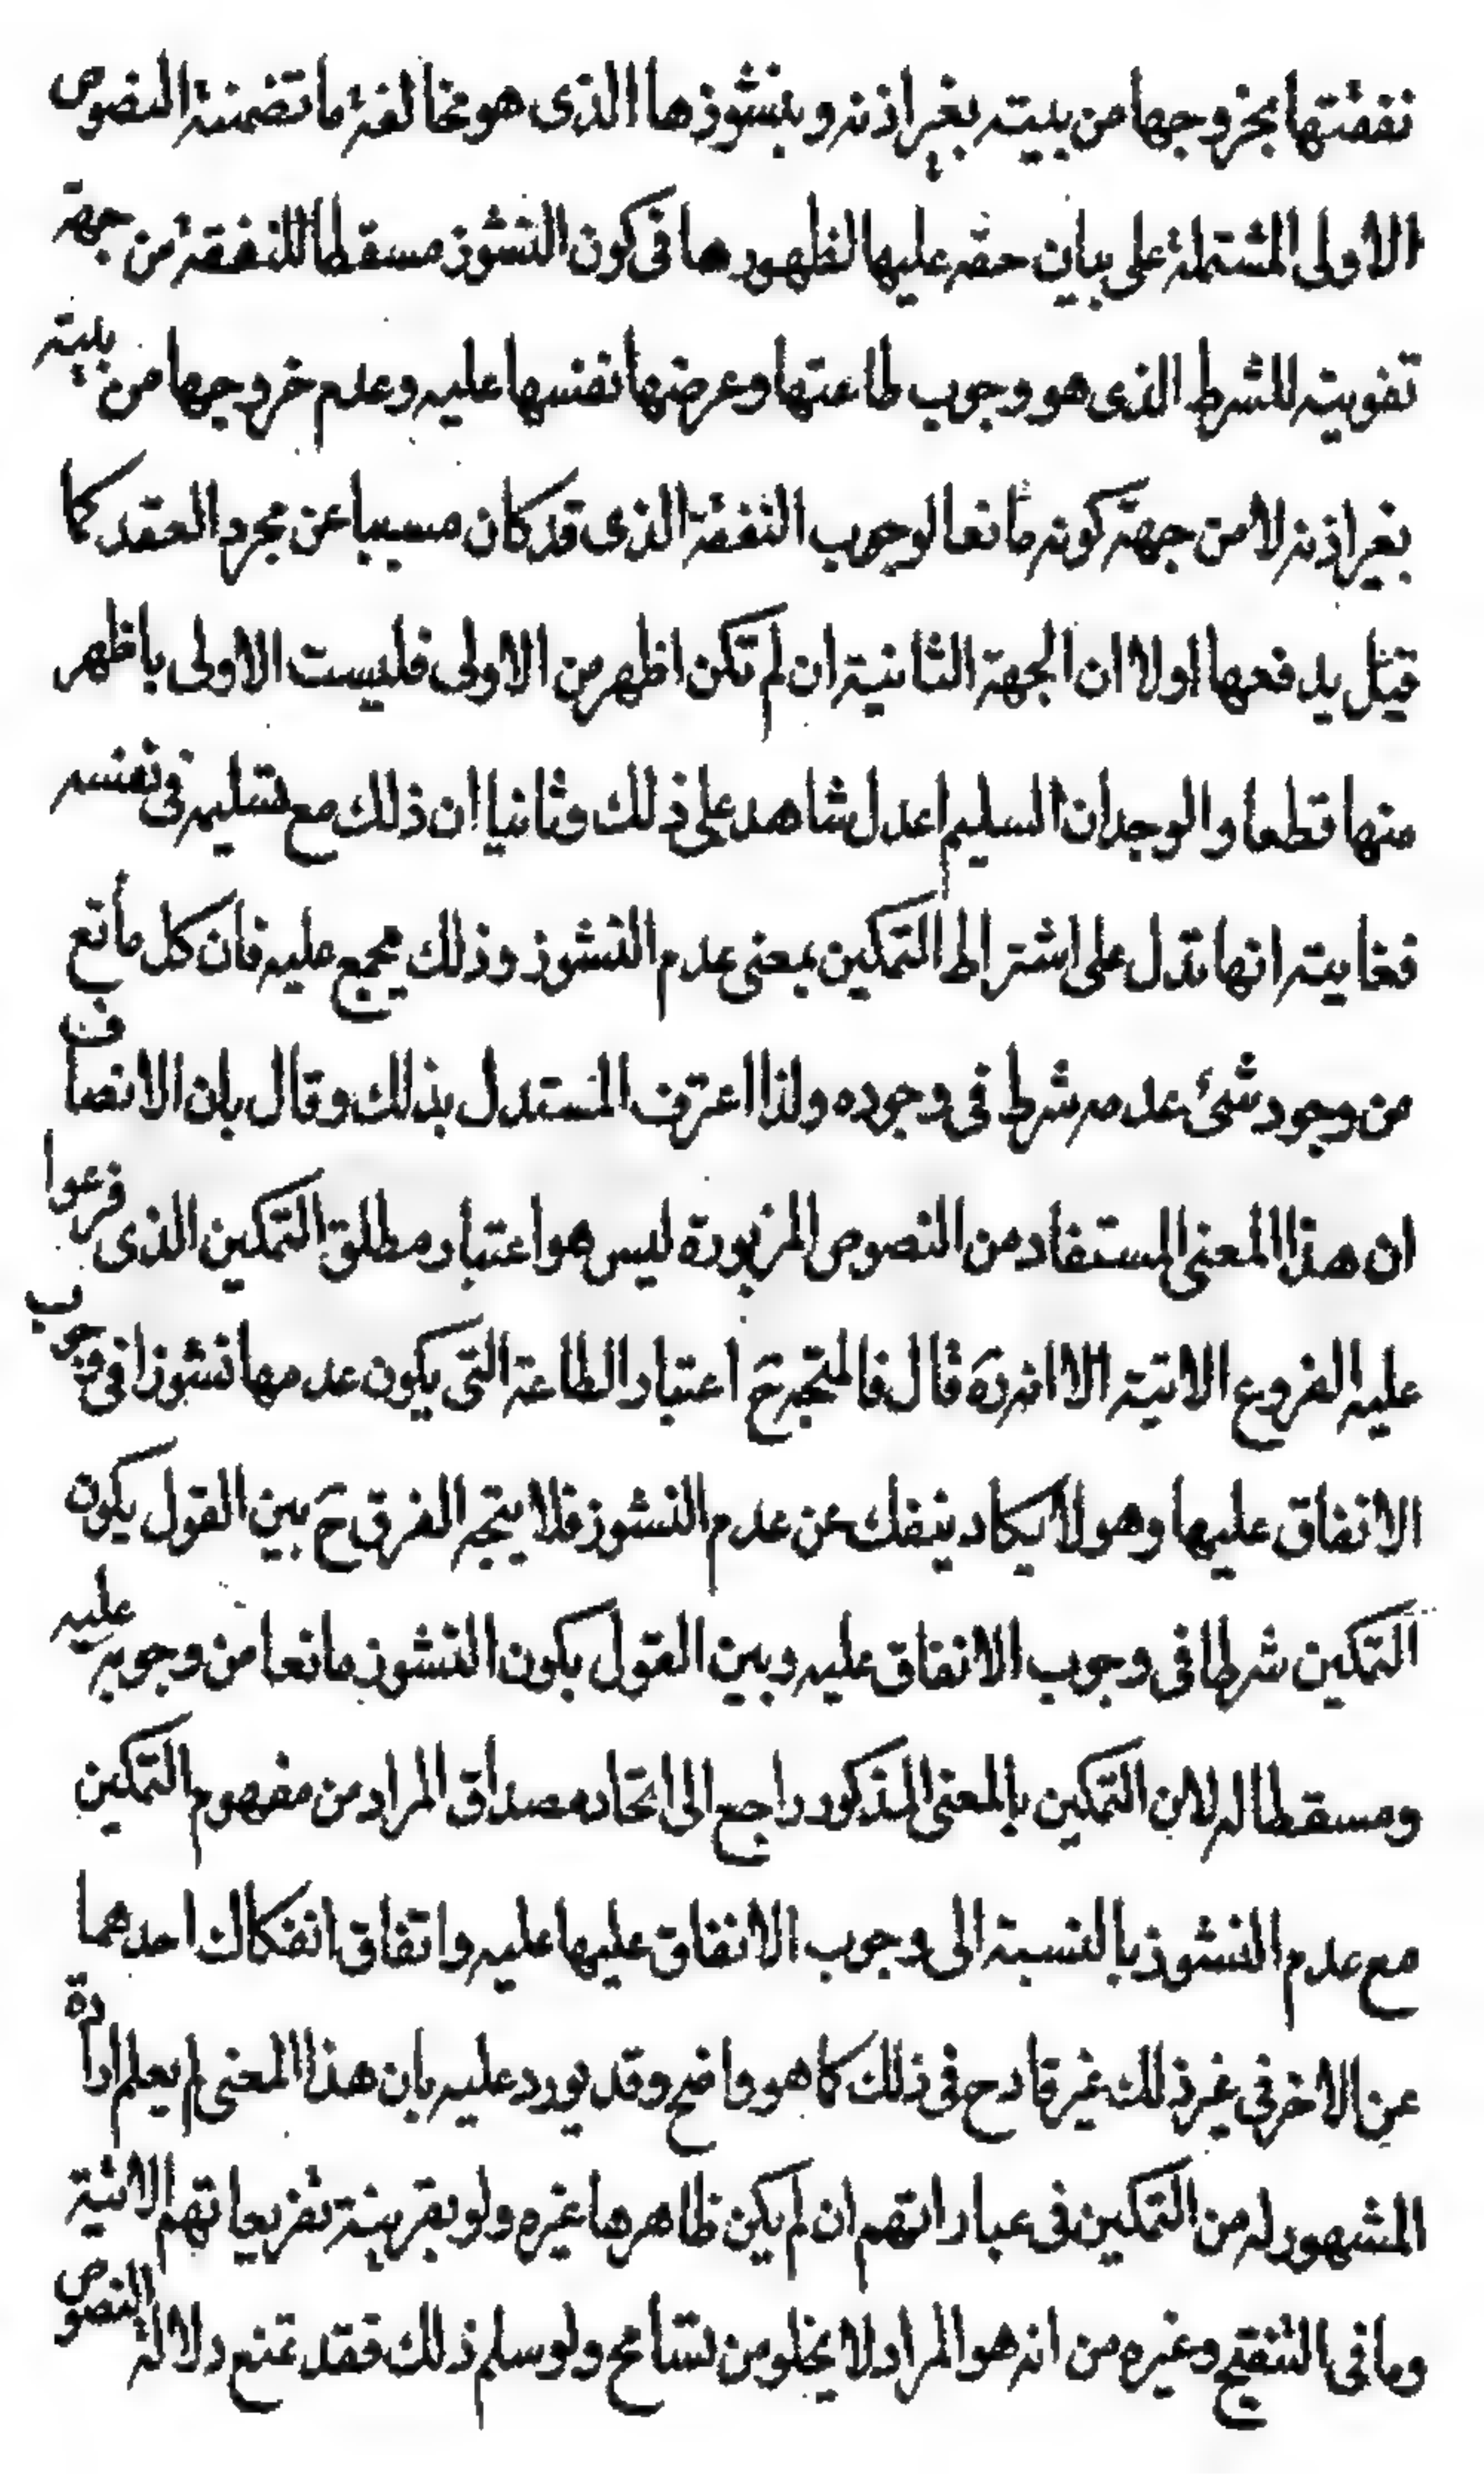 نفقتها بخروجها من بيته بغير اذنه وبنشوزها الذى هو مخالفة ما تضمنته النصوص
الاولى المشتملة على بيان حقه عليها لظهورها فى كون النشوز مسقطا للنفقة من جهة
تفويته للشرط الذى هو وجوب طاعتها وعرضها نفسها عليه وعدم خروجها من بيته
بغير اذنه لا من جهة كونه مانعا لوجوب النفقة الذى قد كان مسببا عن مجرد العقد كما
قيل يدفعها اولا ان الجهة الثانية ان لم تكن اظهر من الاولى فليست الاولى باظهر
منها قطعا والوجدان السليم اعدل شاهد على ذلك وثانيا ان ذلك مع تسليمه فى نفسه
فغايته انها تدل على اشتراط التمكين بمعنى عدم النشوز وذلك مجمع عليه فان كل مانع
من وجود شئ عدمه شرط فى وجوده ولذا اعترف المستدل بذلك وقال بان الانصاف
ان هذا المعنى المستفاد من النصوص المزبورة ليس هو اعتبار مطلق التمكين الذى فرعوا
عليه الفروع الاتية الا انه رَه قال فالمتجه حَ اعتبار الطاعة التى يكون عدمها نشوزا فى وجوب
الانفاق عليها وهو لا يكاد ينفك عن عدم النشوز فلا يتجه الفرق حَ بين القول بكون
التمكين شرطا فى وجوب الانفاق عليه وبين القول بكون النشوز مانعا من وجوبه عليه
ومسقطا له لان التمكين بالمعنى المذكور راجع الى اتحاد مصداق المراد من مفهوم التمكين
مع عدم النشوز بالنسبة الى وجوب الانفاق عليها عليه واتفاق انفكاك احدهما
عن الاخر فى غير ذلك غير قادح فى ذلك كما هو واضح وقد يورد عليه بان هذا المعنى لم يعلم ارادة
المشهور له من التمكين فى عباراتهم ان لم يكن ظاهرها غيره ولو بقرينة تفريعاتهم الاتية
وما فى التنقيح وغيره من انه هو المراد لا يخلو من تسامح ولو سلم ذلك فقد تمنع دلالة النصوص